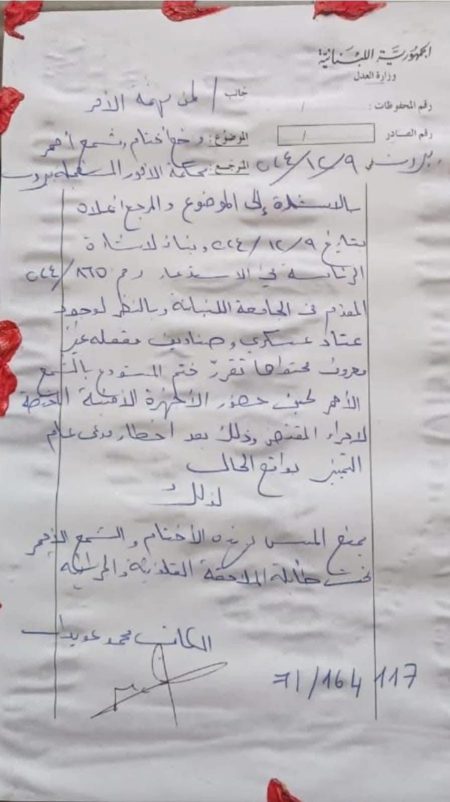 الجمهورية اللبنانية
وزارة العدل
رقم المحفوظات: /
رقم الصادر /
جانب / لمن يهمه الأمر
الموضوع: وضع أختام وشمع أحمر
المرجع: محكمة الأمور المستعجلة بيروت
بيروت ٢٠٢٤/١٢/٩
بالاستناد إلى الموضوع والمرجع أعلاه
بتاريخ ٢٠٢٤/١٢/٩ وبناء لاشارة
الرئاسة في الاستدعاء رقم ٢٠٢٤/٨٦٥
المقدم من الجامعة اللبنانية وبالنظر لوجود
عتاد عسكري وصناديق مقفلة غير
معروف محتواها تقرر ختم المستودع بالشمع
الأحمر لحين حضور الأجهزة الأمنية المختصة
لاجراء المقتضى وذلك بعد اخطار مدعي عام
التمييز بواقع الحال
لذلك
يمنع المس بهذه الأختام والشمع الأحمر
تحت طائلة الملاحقة القانونية والجزائية
الكاتب محمد عويدات
71/164 117